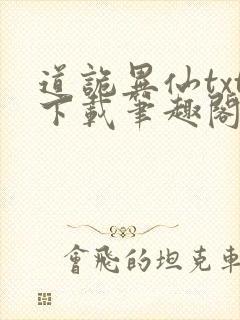 道詭異仙txt
下載筆趣閣
會飛的坦克車